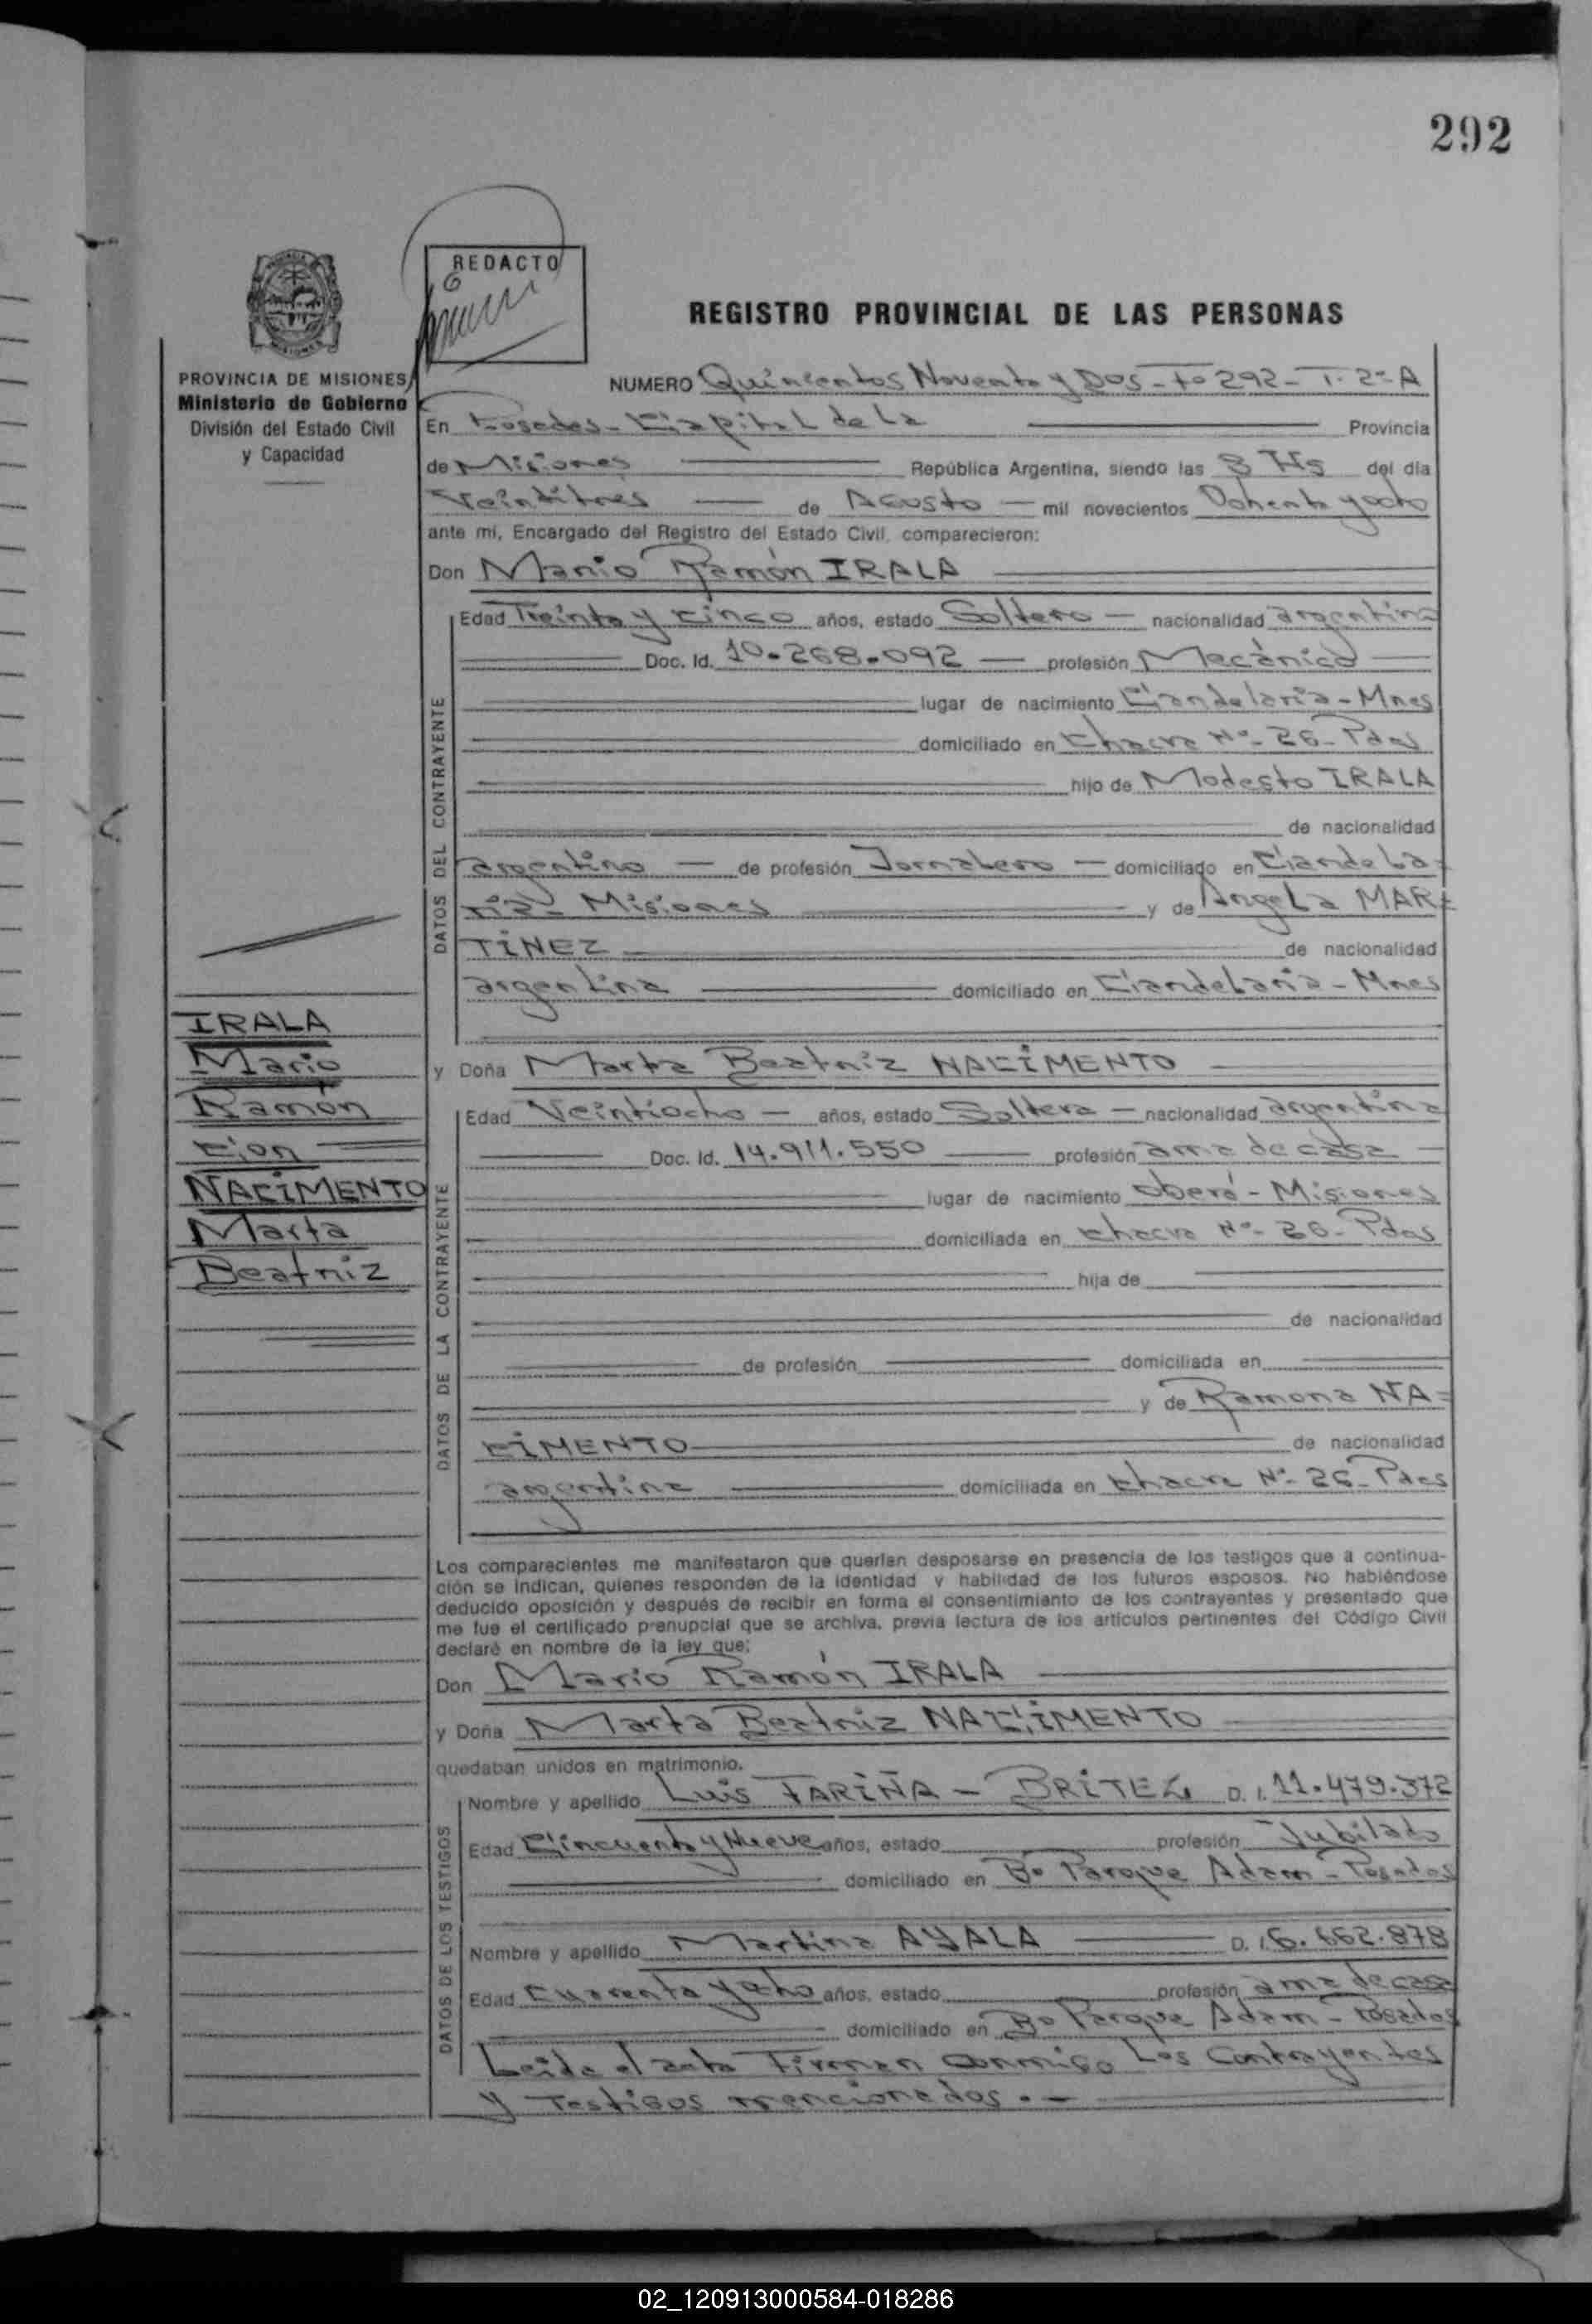 292
REDACTO
REGISTRO PROVINCIAL DE LAS PERSONAS
PROVINCIA DE MISIONES
Ministerio de Gobierno
División del Estado Civil
y Capacidad
NUMERO Quinientos Noventa y Dos - Fº 292 - T. 2º A
En Posadas - Capital de La Provincia
de Misiones República Argentina, siendo las 8 Hs del día
Veintitres de Agosto mil novecientos Ochenta y ocho
ante mí, Encargado del Registro del Estado Civil, comparecieron:
Don Mario Ramón IRALA
DATOS DEL CONTRAYENTE
Edad Treinta y cinco años, estado Soltero nacionalidad argentina
Doc. Id. 10.268.092 profesión Mecánico
lugar de nacimiento Candelaria - Mnes
domiciliado en Chacra Nº 26 - Pdas
hijo de Modesto IRALA
de nacionalidad
argentino de profesión Jornalero domiciliado en Candela=
ria - Misiones y de Angela MAR=
TINEZ de nacionalidad
argentina domiciliado en Candelaria - Mnes
IRALA
Mario
Ramón
con
NACIMENTO
Marta
Beatriz
y Doña Marta Beatriz NACIMENTO
DATOS DE LA CONTRAYENTE
Edad Veintiocho años, estado Soltera nacionalidad argentina
Doc. Id. 14.911.550 profesión ama de casa
lugar de nacimiento Oberá - Misiones
domiciliada en Chacra Nº 26 - Pdas
hija de
de nacionalidad
de profesión domiciliada en
y de Ramona NA=
CIMENTO de nacionalidad
argentina domiciliada en Chacra Nº 26 - Pdas
Los comparecientes me manifestaron que querían desposarse en presencia de los testigos que a continua-
ción se indican, quienes responden de la identidad y habilidad de los futuros esposos. No habiéndose
deducido oposición y después de recibir en forma el consentimiento de los contrayentes y presentado que
me fue el certificado prenupcial que se archiva, previa lectura de los artículos pertinentes del Código Civil
declaré en nombre de la ley que:
Don Mario Ramón IRALA
y Doña Marta Beatriz NACIMENTO
quedaban unidos en matrimonio.
DATOS DE LOS TESTIGOS
Nombre y apellido Luis FARIÑA - BRITEZ D. I. 11.479.372
Edad Cincuenta y Nueve años, estado profesión Jubilado
domiciliado en Bº Parque Adam - Posadas
Nombre y apellido Martina AYALA D. I. 6.662.878
Edad Cuarenta y ocho años, estado profesión ama de casa
domiciliado en Bº Parque Adam - Posadas
Leida el acta Firman conmigo Los Contrayentes
y Testigos mencionados . -
02_120913000584-018286